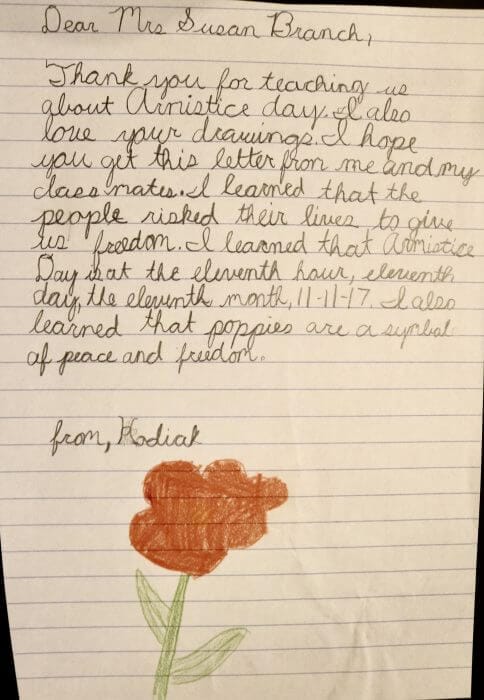 Dear Mrs Susan Branch,
Thank you for teaching us
about Armistice day. I also
love your drawings. I hope
you get this letter from me and my
class mates. I learned that the
people risked their lives to give
us freedom. I learned that Armistice
Day is at the eleventh hour, eleventh
day, the eleventh month, 11-11-17. I also
learned that poppies are a symbol
of peace and freedom.
from, Kodiak